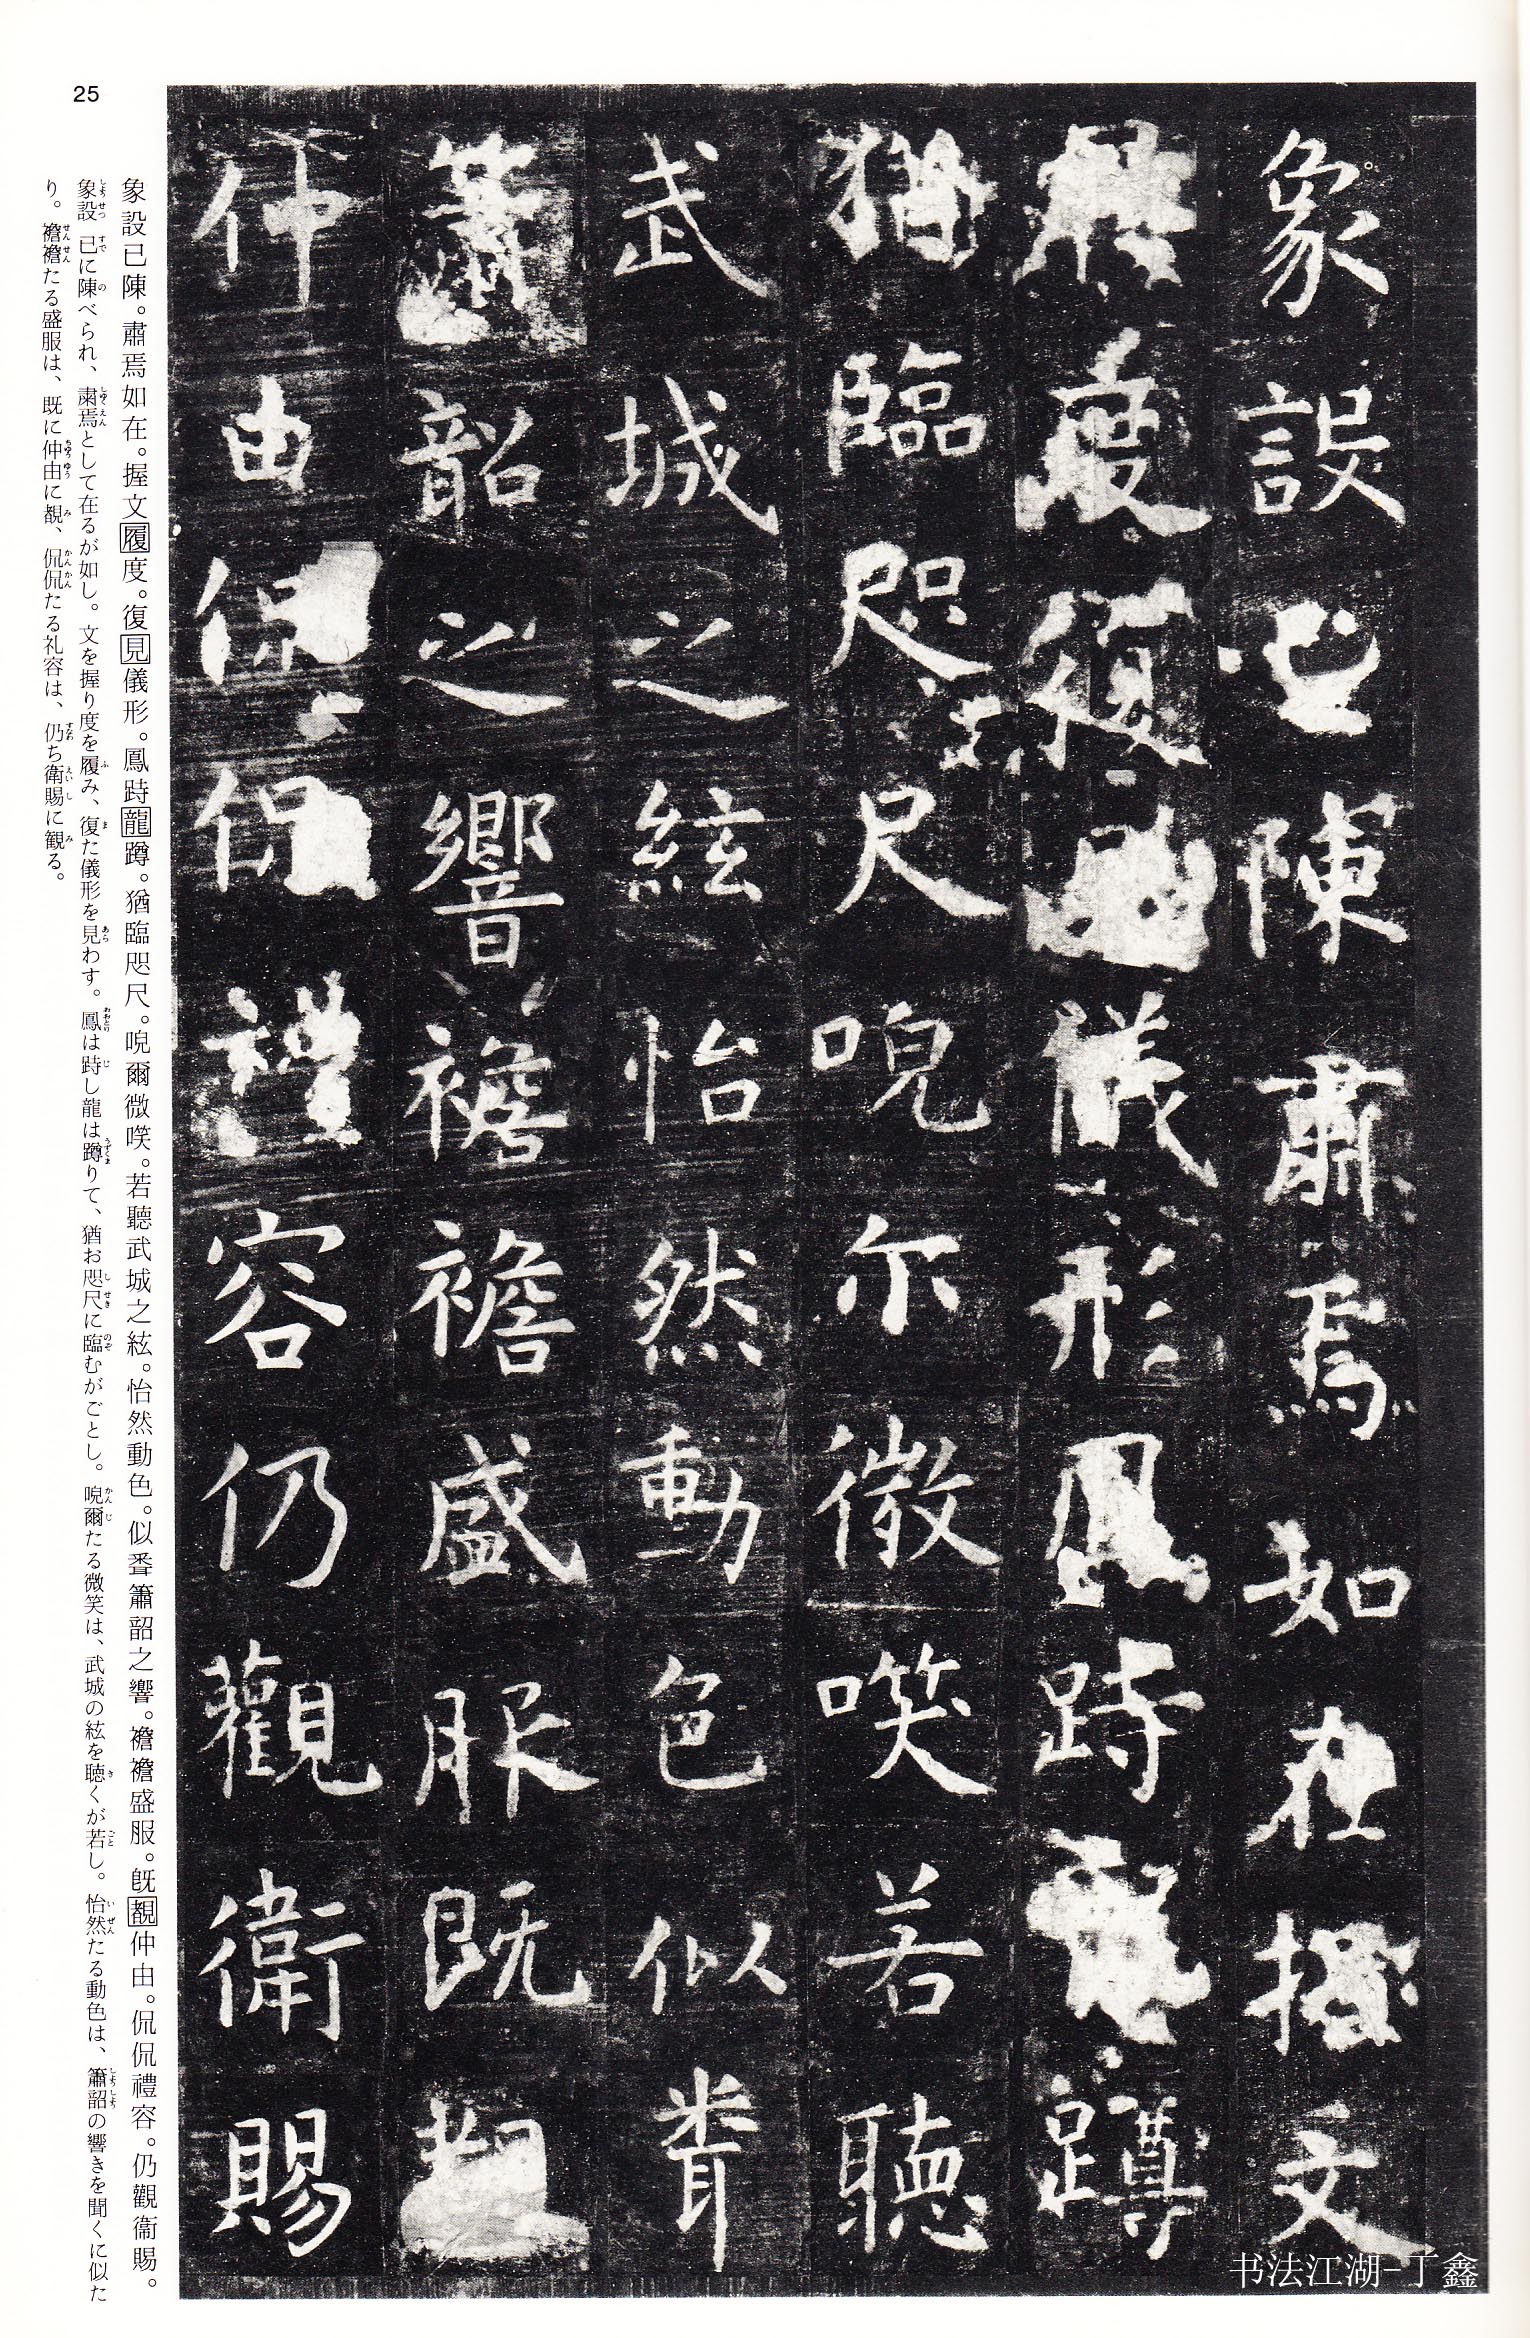 象設已陳肅焉如在握文
度復儀形鳳跱蹲
猶臨咫尺唲尔微唉若聽
武城之絃怡然動色似聋
簫韶之響襜襜盛服既
仲由侃侃禮容仍觀衛賜
象設已陳。肅焉如在。握文履度。復見儀形。鳳跱龍蹲。猶臨咫尺。唲爾微唉。若聽武城之絃。怡然動色。似聋簫韶之響。襜襜盛服。既覩仲由。侃侃禮容。仍觀衞賜。
象設已に陳べられ、粛焉として在るが如し。文を握り度を履み、復た儀形を見わす。鳳は跱し龍は蹲りて、猶お咫尺に臨むがごとし。唲爾たる微笑は、武城の絃を聴くが若し。怡然たる動色は、簫韶の響きを聞くに似た
り。襜襜たる盛服は、既に仲由に覩、侃侃たる礼容は、仍ち衛賜に観る。
25
书法江湖-丁鑫